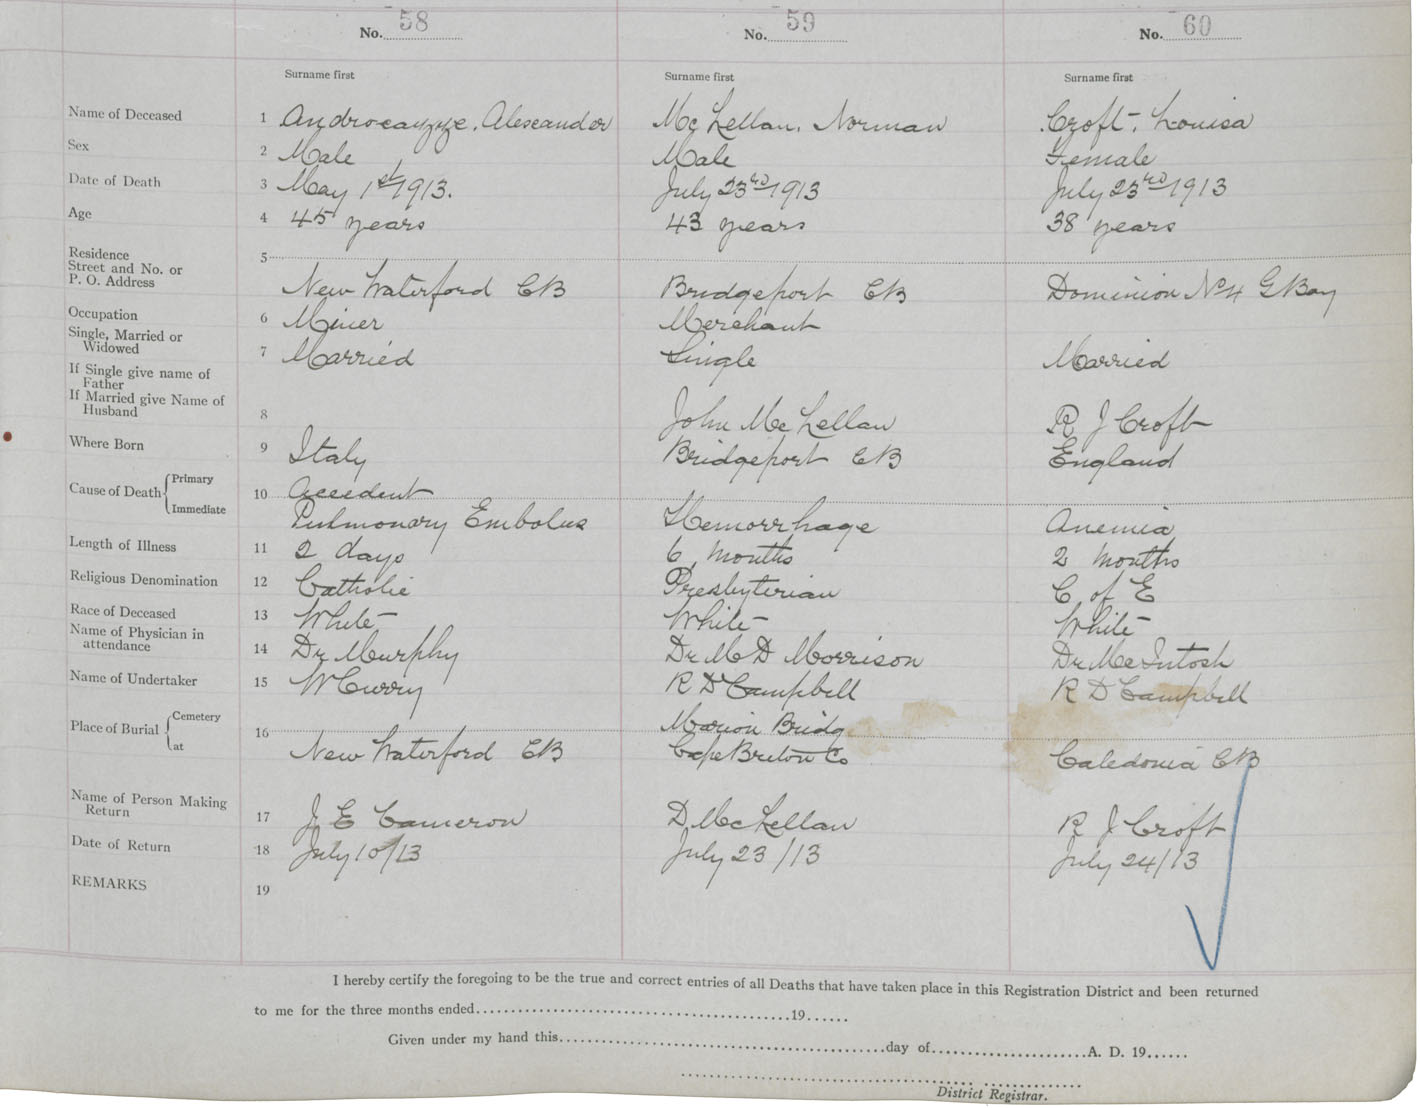 No. 58 No. 59 No. 60
Surname first Surname first Surname first
Name of Deceased 1 Androcayze, Alexander McLellan, Norman Croft, Louisa
Sex 2 Male Male Female
Date of Death 3 May 1st 1913. July 23rd 1913 July 23rd 1913
Age 4 45 years 43 years 38 years
Residence 5
Street and No. or
P. O. Address New Waterford CB Bridgeport CB Dominion No 4 G Bay
Occupation 6 Miner Merchant
Single, Married or
Widowed 7 Married Single Married
If Single give name of
Father
If Married give Name of
Husband 8 John McLellan R J Croft
Where Born 9 Italy Bridgeport CB England
Cause of Death Primary 10 Accedent
Immediate Pulmonary Embolus Hemorrhage Anemia
Length of Illness 11 2 days 6 months 2 months
Religious Denomination 12 Catholic Presbyterian C of E
Race of Deceased 13 White White White
Name of Physician in
attendance 14 Dr Murphy Dr M D Morrison Dr McIntosh
Name of Undertaker 15 W Curry R D Campbell R D Campbell
Place of Burial Cemetery 16 Marion Bridg
at New Waterford CB Cape Breton Co Caledonia CB
Name of Person Making
Return 17 J E Cameron D McLellan R J Croft
Date of Return 18 July 10/13 July 23/13 July 24/13
REMARKS 19
I hereby certify the foregoing to be the true and correct entries of all Deaths that have taken place in this Registration District and been returned
to me for the three months ended 19
Given under my hand this day of A. D. 19
District Registrar.